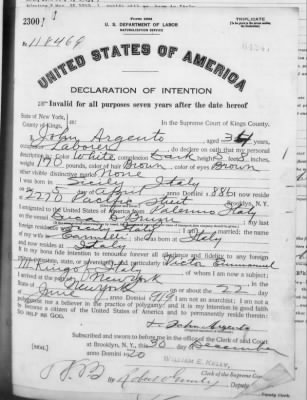 Form 2203
TRIPLICATE
2300
U. S. DEPARTMENT OF LABOR
NATURALIZATION SERVICE
No. 118469
UNITED STATES OF AMERICA
DECLARATION OF INTENTION
Invalid for all purposes seven years after the date hereof
State of New York,
County of Kings,
In the Supreme Court of Kings County.
I, John Argento, aged 34 years,
occupation Laborer, do declare on oath that my personal
description is: Color White, complexion Dark, height 5 feet 8 inches,
weight 170 pounds, color of hair Brown, color of eyes Brown
other visible distinctive marks None
I was born in Sicily Italy
on the 5 day of April, anno Domini 1886; I now reside
at 225 Pacific Street Brooklyn, N.Y.
I emigrated to the United States of America from Palermo Italy
on the vessel; my last
foreign residence was Sicily Italy; I am married; the name
of my wife is; she was born at Italy
and now resides at Italy
It is my bona fide intention to renounce forever all allegiance and fidelity to any foreign
prince, potentate, state, or sovereignty, and particularly to Victor Emmanuel
III King of Italy, of whom I am now a subject;
I arrived at the port of New York
State of New York, on or about the 22 day
of, anno Domini; I am not an anarchist; I am not a
polygamist nor a believer in the practice of polygamy; and it is my intention in good faith
to become a citizen of the United States of America and to permanently reside therein:
SO HELP ME GOD.
John Argento
Subscribed and sworn to before me in the office of the Clerk of said Court
at Brooklyn, N.Y., this 30 day of December
anno Domini 1920
[SEAL]
WILLIAM E. KELLY,
Clerk of the Supreme Court
By, Deputy Clerk